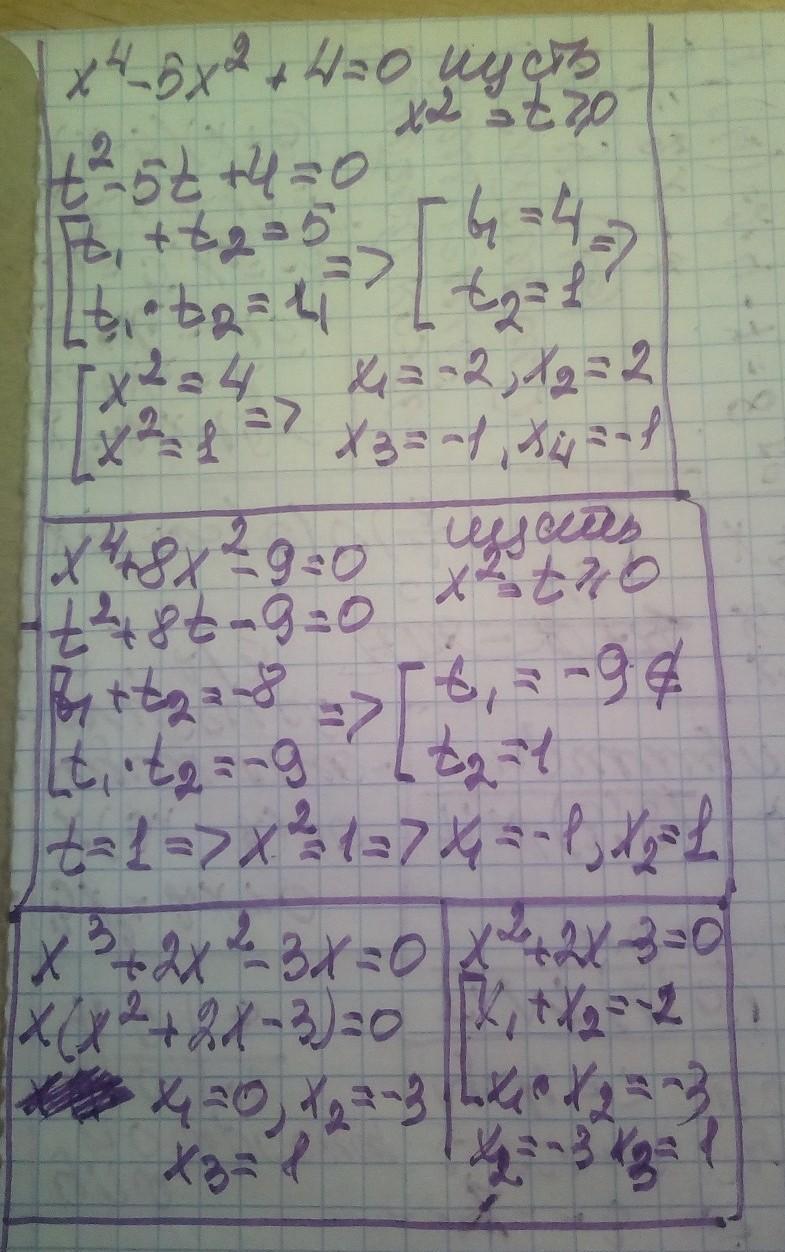 x⁴-5x²+4=0 пусть
x2 =t⩾0
t²-5t+4=0
[t₁+t₂=5 => [t₁=4 =>
t₁·t₂=4 t₂=1
[x²=4 => x₁=-2, x₂=2
x²=1 x₃=-1, x₄=-1
x⁴+8x²-9=0 пусть
x²=t⩾0
t²+8t-9=0
[t₁+t₂=-8 => [t₁=-9∉
t₁·t₂=-9 t₂=1
t=1=>x²=1=> x₁=-1, x₂=1
x³+2x²-3x=0
x(x²+2x-3)=0
x₁=0, x₂=-3
x₃=1
x²+2x-3=0
[x₁+x₂=-2
x₁·x₂=-3
x₂=-3 x₃=1